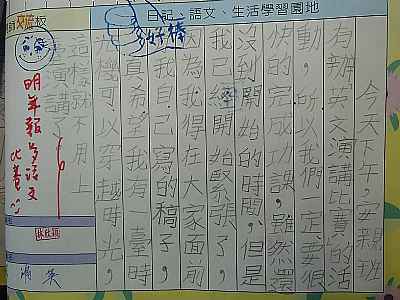 日記、語文、生活學習園地
多好棒
今天下午,安親班
有辦英文演講比賽的活
動,所以我們一定要很
快的完成功課,雖然還
沒到開始的時間,但是
我已經開始緊張了,
因為我得在大家面前
我自己寫的稿子,
真希望我有一臺時
光機可以穿越時光,
這樣就不用上
臺演講了。
明年報名
比賽